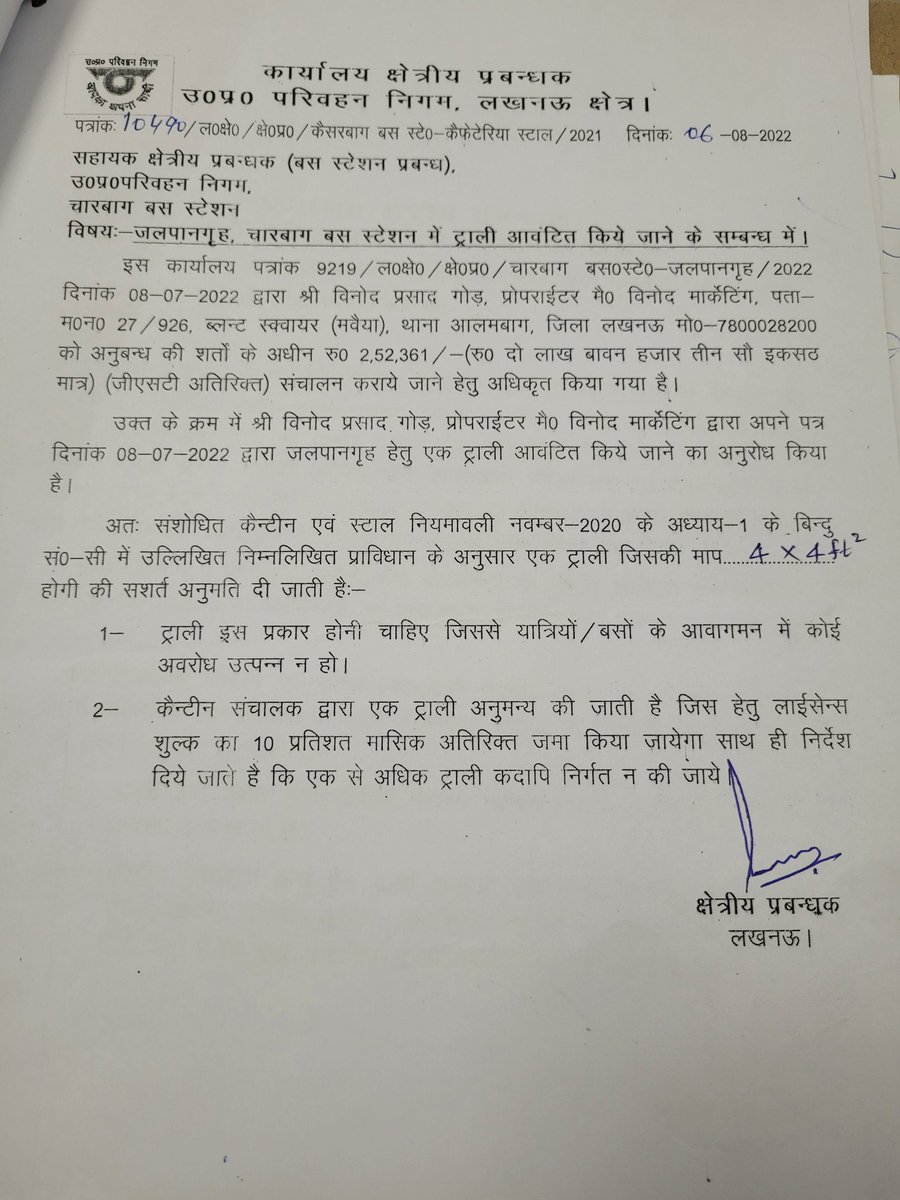 उ०प्र० परिवहन निगम
आपका अपना साथी
कार्यालय क्षेत्रीय प्रबन्धक
उ0प्र0 परिवहन निगम, लखनऊ क्षेत्र।
पत्रांकः 10490/ल0क्षे0/क्षे0प्र0/कैसरबाग बस स्टे0–कैफेटेरिया स्टाल/2021 दिनांकः 06 -08-2022
सहायक क्षेत्रीय प्रबन्धक (बस स्टेशन प्रबन्ध),
उ0प्र0परिवहन निगम,
चारबाग बस स्टेशन
विषयः–जलपानगृह, चारबाग बस स्टेशन में ट्राली आवंटित किये जाने के सम्बन्ध में।
इस कार्यालय पत्रांक 9219/ल0क्षे0/क्षे0प्र0/चारबाग बस0स्टे0–जलपानगृह/2022
दिनांक 08–07–2022 द्वारा श्री विनोद प्रसाद गोड़, प्रोपराईटर मै0 विनोद मार्केटिंग, पता–
म0न0 27/926, ब्लन्ट स्क्वायर (मवैया), थाना आलमबाग, जिला लखनऊ मो0–7800028200
को अनुबन्ध की शर्तो के अधीन रु0 2,52,361/–(रु0 दो लाख बावन हजार तीन सौ इकसठ
मात्र) (जीएसटी अतिरिक्त) संचालन कराये जाने हेतु अधिकृत किया गया है।
उक्त के क्रम में श्री विनोद प्रसाद गोड़, प्रोपराईटर मै0 विनोद मार्केटिंग द्वारा अपने पत्र
दिनांक 08–07–2022 द्वारा जलपानगृह हेतु एक ट्राली आवंटित किये जाने का अनुरोध किया
है।
अतः संशोधित कैन्टीन एवं स्टाल नियमावली नवम्बर–2020 के अध्याय–1 के बिन्दु
सं0–सी में उल्लिखित निम्नलिखित प्राविधान के अनुसार एक ट्राली जिसकी माप...4 x 4 ft²
होगी की सशर्त अनुमति दी जाती हैः–
1– ट्राली इस प्रकार होनी चाहिए जिससे यात्रियों/बसों के आवागमन में कोई
अवरोध उत्पन्न न हो।
2– कैन्टीन संचालक द्वारा एक ट्राली अनुमन्य की जाती है जिस हेतु लाईसेन्स
शुल्क का 10 प्रतिशत मासिक अतिरिक्त जमा किया जायेगा साथ ही निर्देश
दिये जाते है कि एक से अधिक ट्राली कदापि निर्गत न की जाये।
क्षेत्रीय प्रबन्धक
लखनऊ।